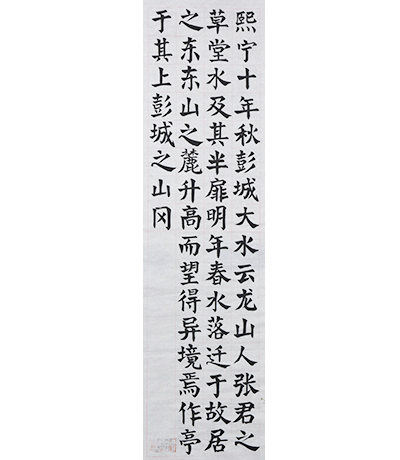 熙宁十年秋彭城大水云龙山人张君之
草堂水及其半扉明年春水落迁于故居
之东东山之麓升高而望得异境焉作亭
于其上彭城之山冈